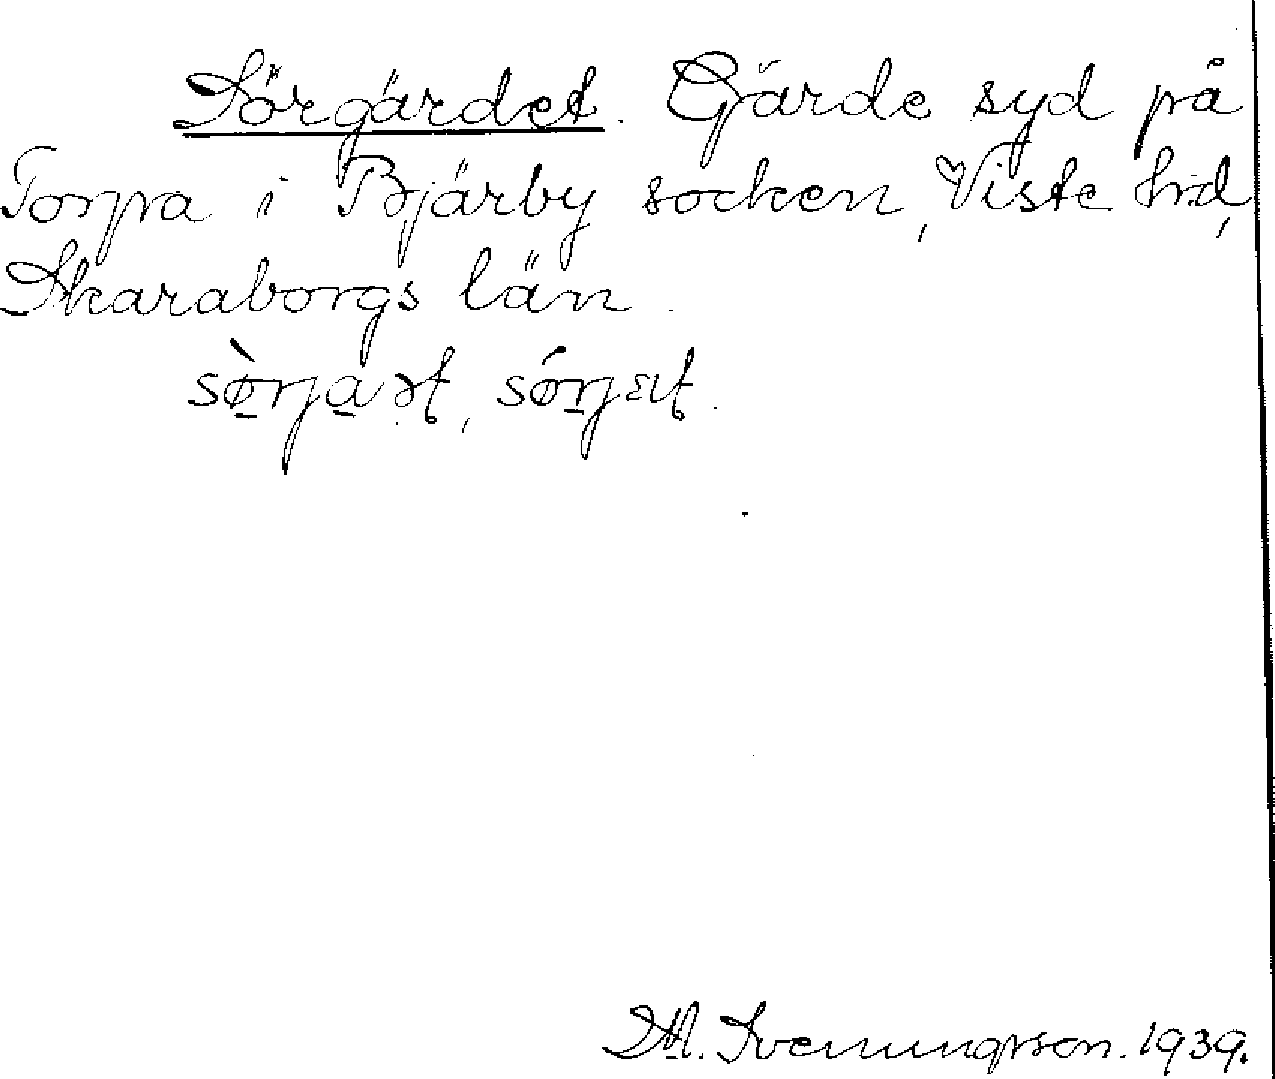 Sörgärdet. Gärde syd på
Torpa i Bjärby socken, Viste hd,
Skaraborgs län.
M. Svenungsson. 1939.